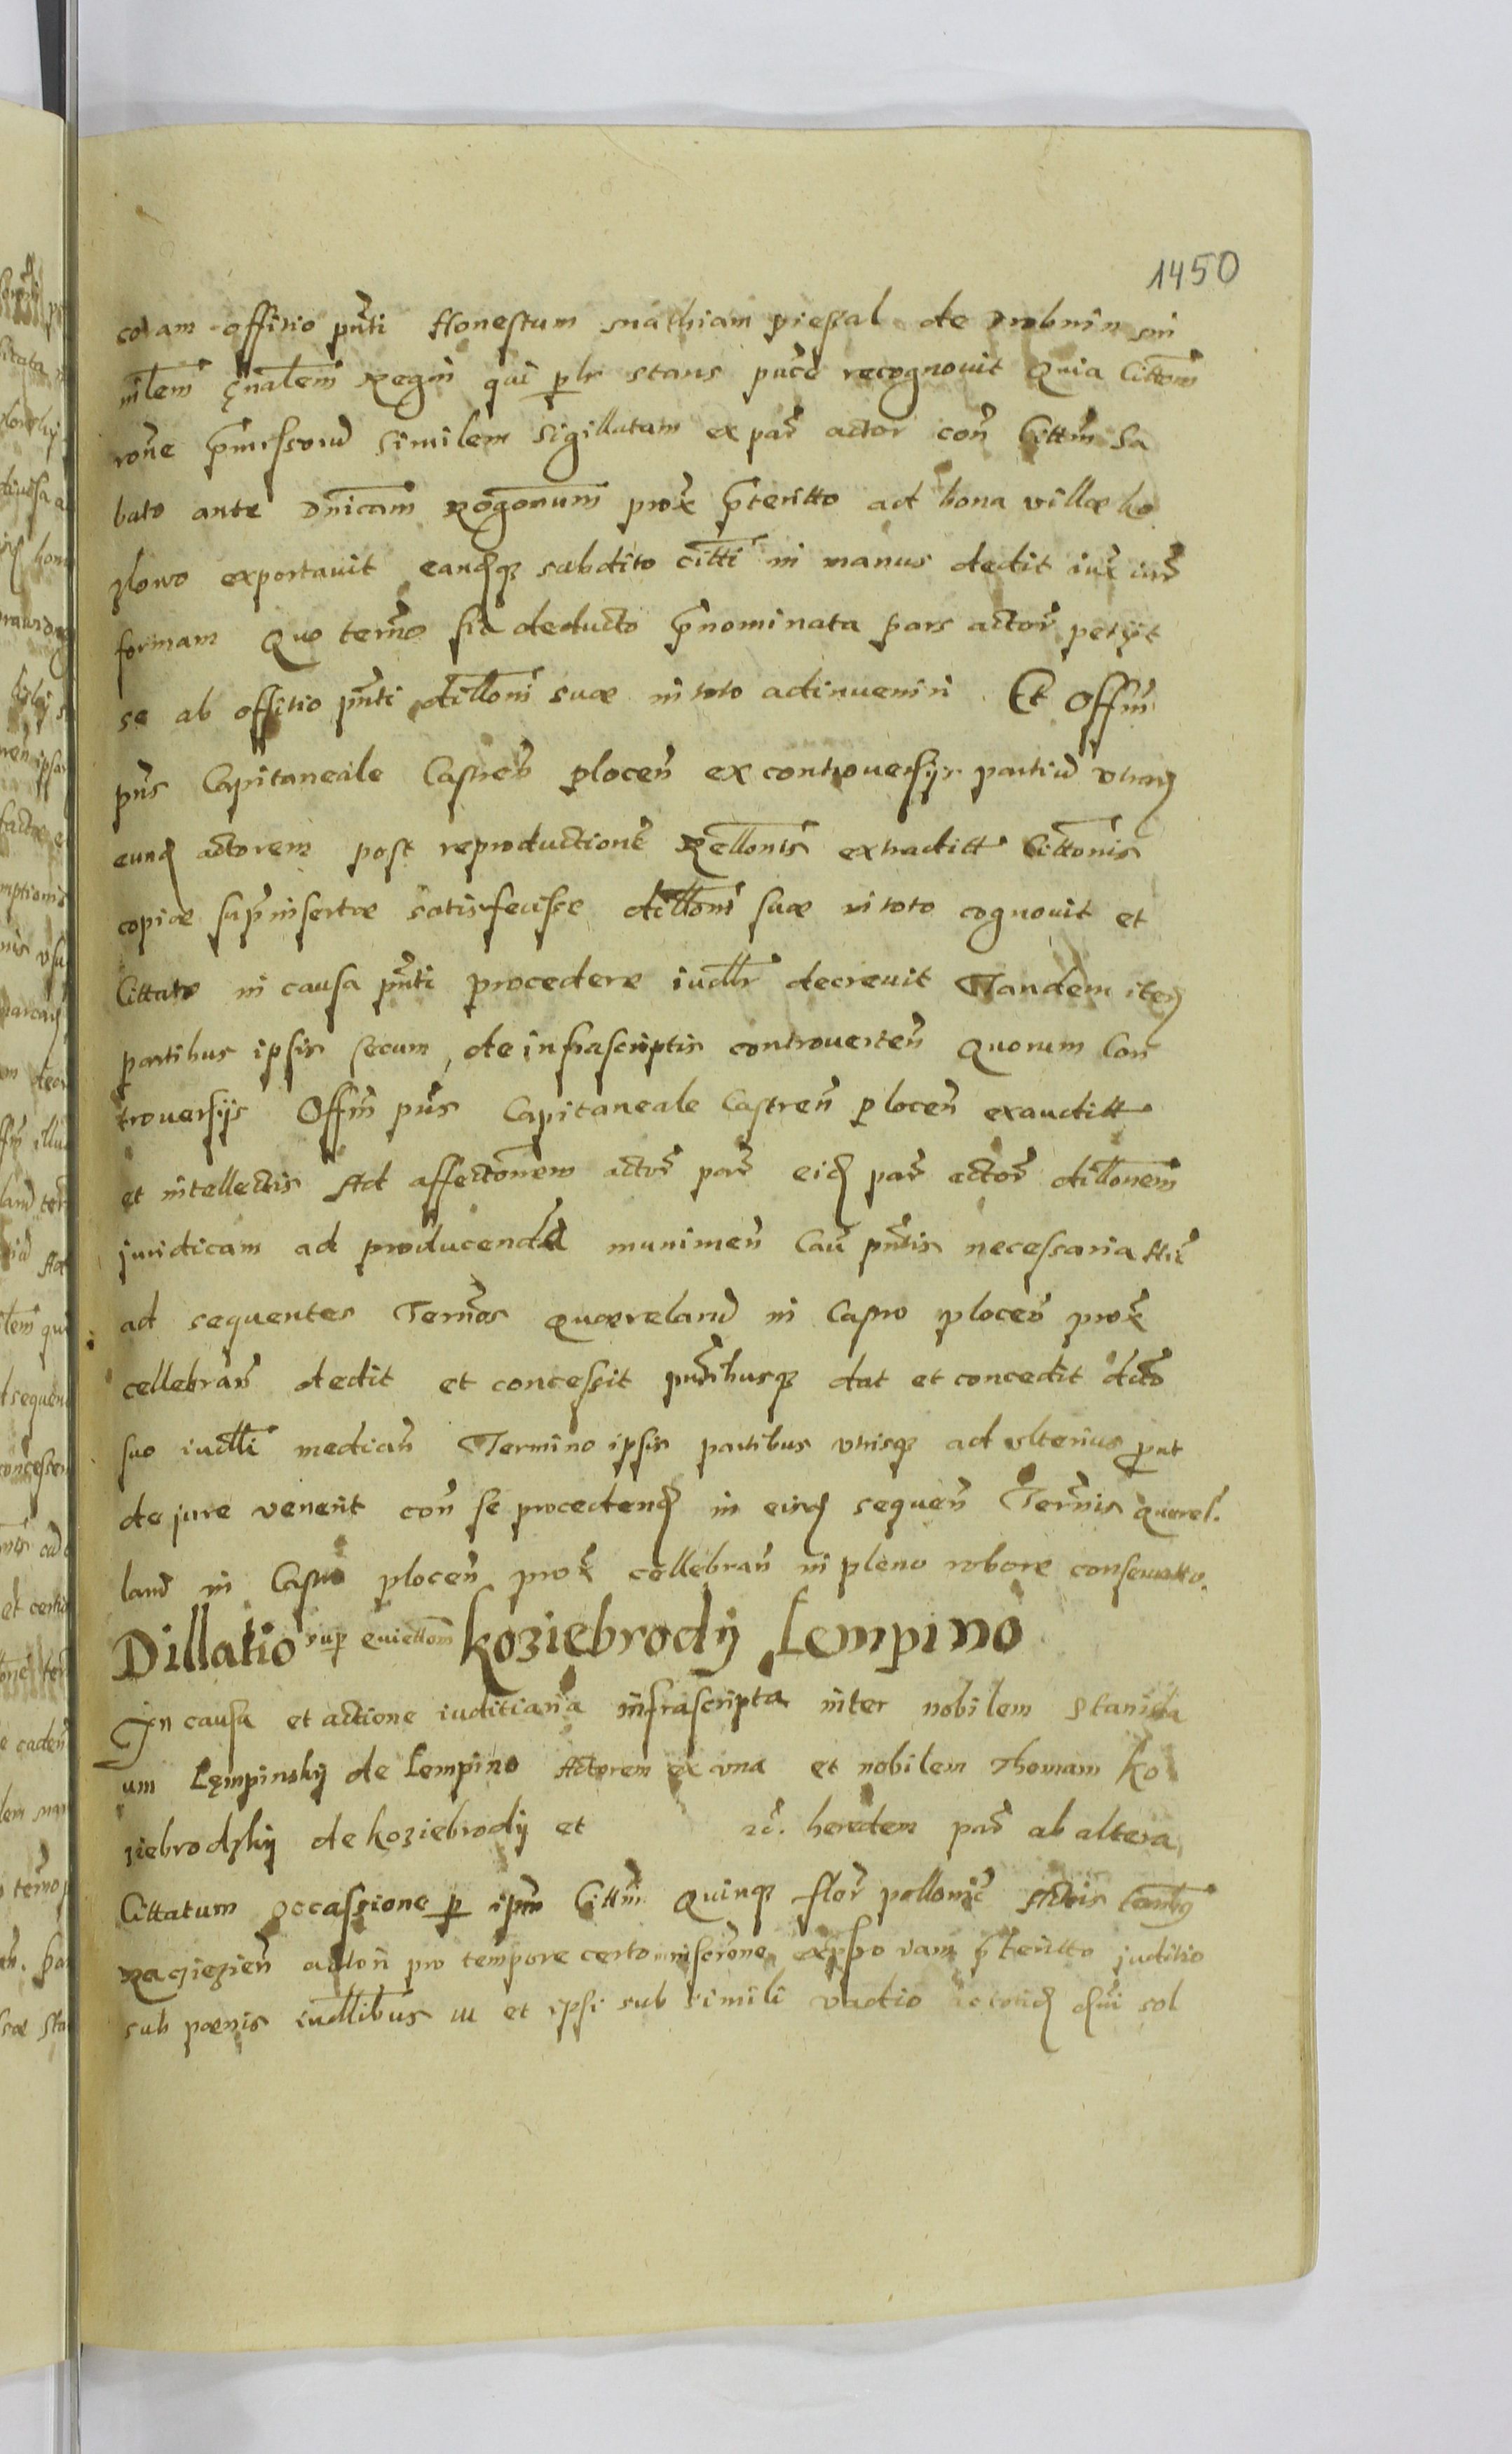 1450
coram offitio pn̄ti Honestum Mathiam pieszal de Drobnin mi
nr̄lem gn̄alem Regni qui plr stans pn̄ce recognovit Quia Citto͞m
ro͞ne p̄missorū similem sigillatam ex par̄ actor con̄ Citt͞m Sa
bato ante Dn̄icam Rogōnum prox̄ p̄teritto ad bona villæ ko
zlowo exportavit eandq̨ subdito citti in manus dedit iux̄ iur̄
formam Quo ter͞mo sic deducto p̄nominata pars actor̄ petijt
se ab offitio pn̄ti dillo͞ni suæ in toto adinveniri Et Off͞m
pn̄s Capitaneale Castren̄ plocen̄ ex controversijs partiū utrarq
eund actorem post reproductione͞ Rello͞nis extraditt Citto͞nis
copiæ sup͞insertæ satisfecisse dillo͞ni suæ in toto cognovit et
Cittato in causa pn̄ti procedere iudlr̄ decrevit Tandem iterq
partibus ipsis secum, de infrascriptis controverten̄ Quorum Con
troversijs Off͞m pn̄s Capitaneale Castren̄ plocen̄ exauditt
et intellectis Ad affecto͞nem actor̄ par̄ eid par̄ actor̄ dillo͞nem
juridicam ad producenda munimen̄ Cau͞ pn̄tis necessaria Hic̄
ad sequentes Ter͞mos Quæreland̄ in Castro plocen̄ prox̄
cellebran̄ dedit et concessit pn̄tibusq̨ dat et concedit dc͞to
suo iudlli median̄ Termino ipsis partibus utrisq̨ ad ulterius prut
de jure venerit con̄ se procedend in eisd sequen̄ Ter͞minis querel.
land̄ in Castro plocen̄ prox̄ cellebran̄ in pleno robore conservatto.
Dillatio sup evictio͞m Koziebrody Lempino
In causa et actione iuditiaria infrascripta inter nobilem Stanisla
um Lęmpinskij de Lempino Actorem ex una et nobilem Thomam Ko
ziebrodzkij de Koziebrody et &c. heredem par̄ ab altera
Cittatum occassione p ipm͞ Citt͞m Quinq̨ flor̄ polloni͞c Actis
Racziązien̄ pro tempore certo inscro͞ne expso iam p̄teritto juditio
sub pœnis iudllibus in et ipsi sub simili vadio ac totid sol